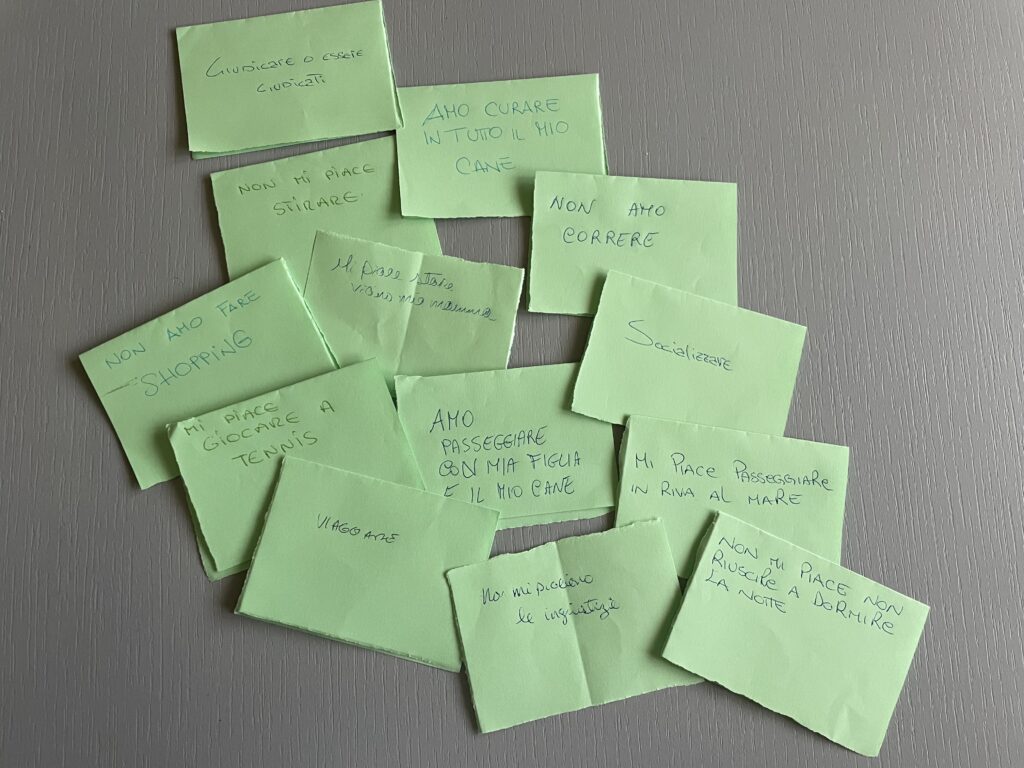 GIUDICARE O ESSERE
GIUDICATI
AMO CURARE
IN TUTTO IL MIO
CANE
NON MI PIACE
STIRARE
NON AMO
CORRERE
Mi piace stare
vicino mia mamma
NON AMO FARE
SHOPPING
Socializzare
MI PIACE
GIOCARE A
TENNIS
AMO
PASSEGGIARE
CON MIA FIGLIA
E IL MIO CANE
MI PIACE PASSEGGIARE
IN RIVA AL MARE
VIAGGIARE
Non mi piacciono
le ingiustizie
NON MI PIACE NON
RIUSCIRE A DORMIRE
LA NOTTE